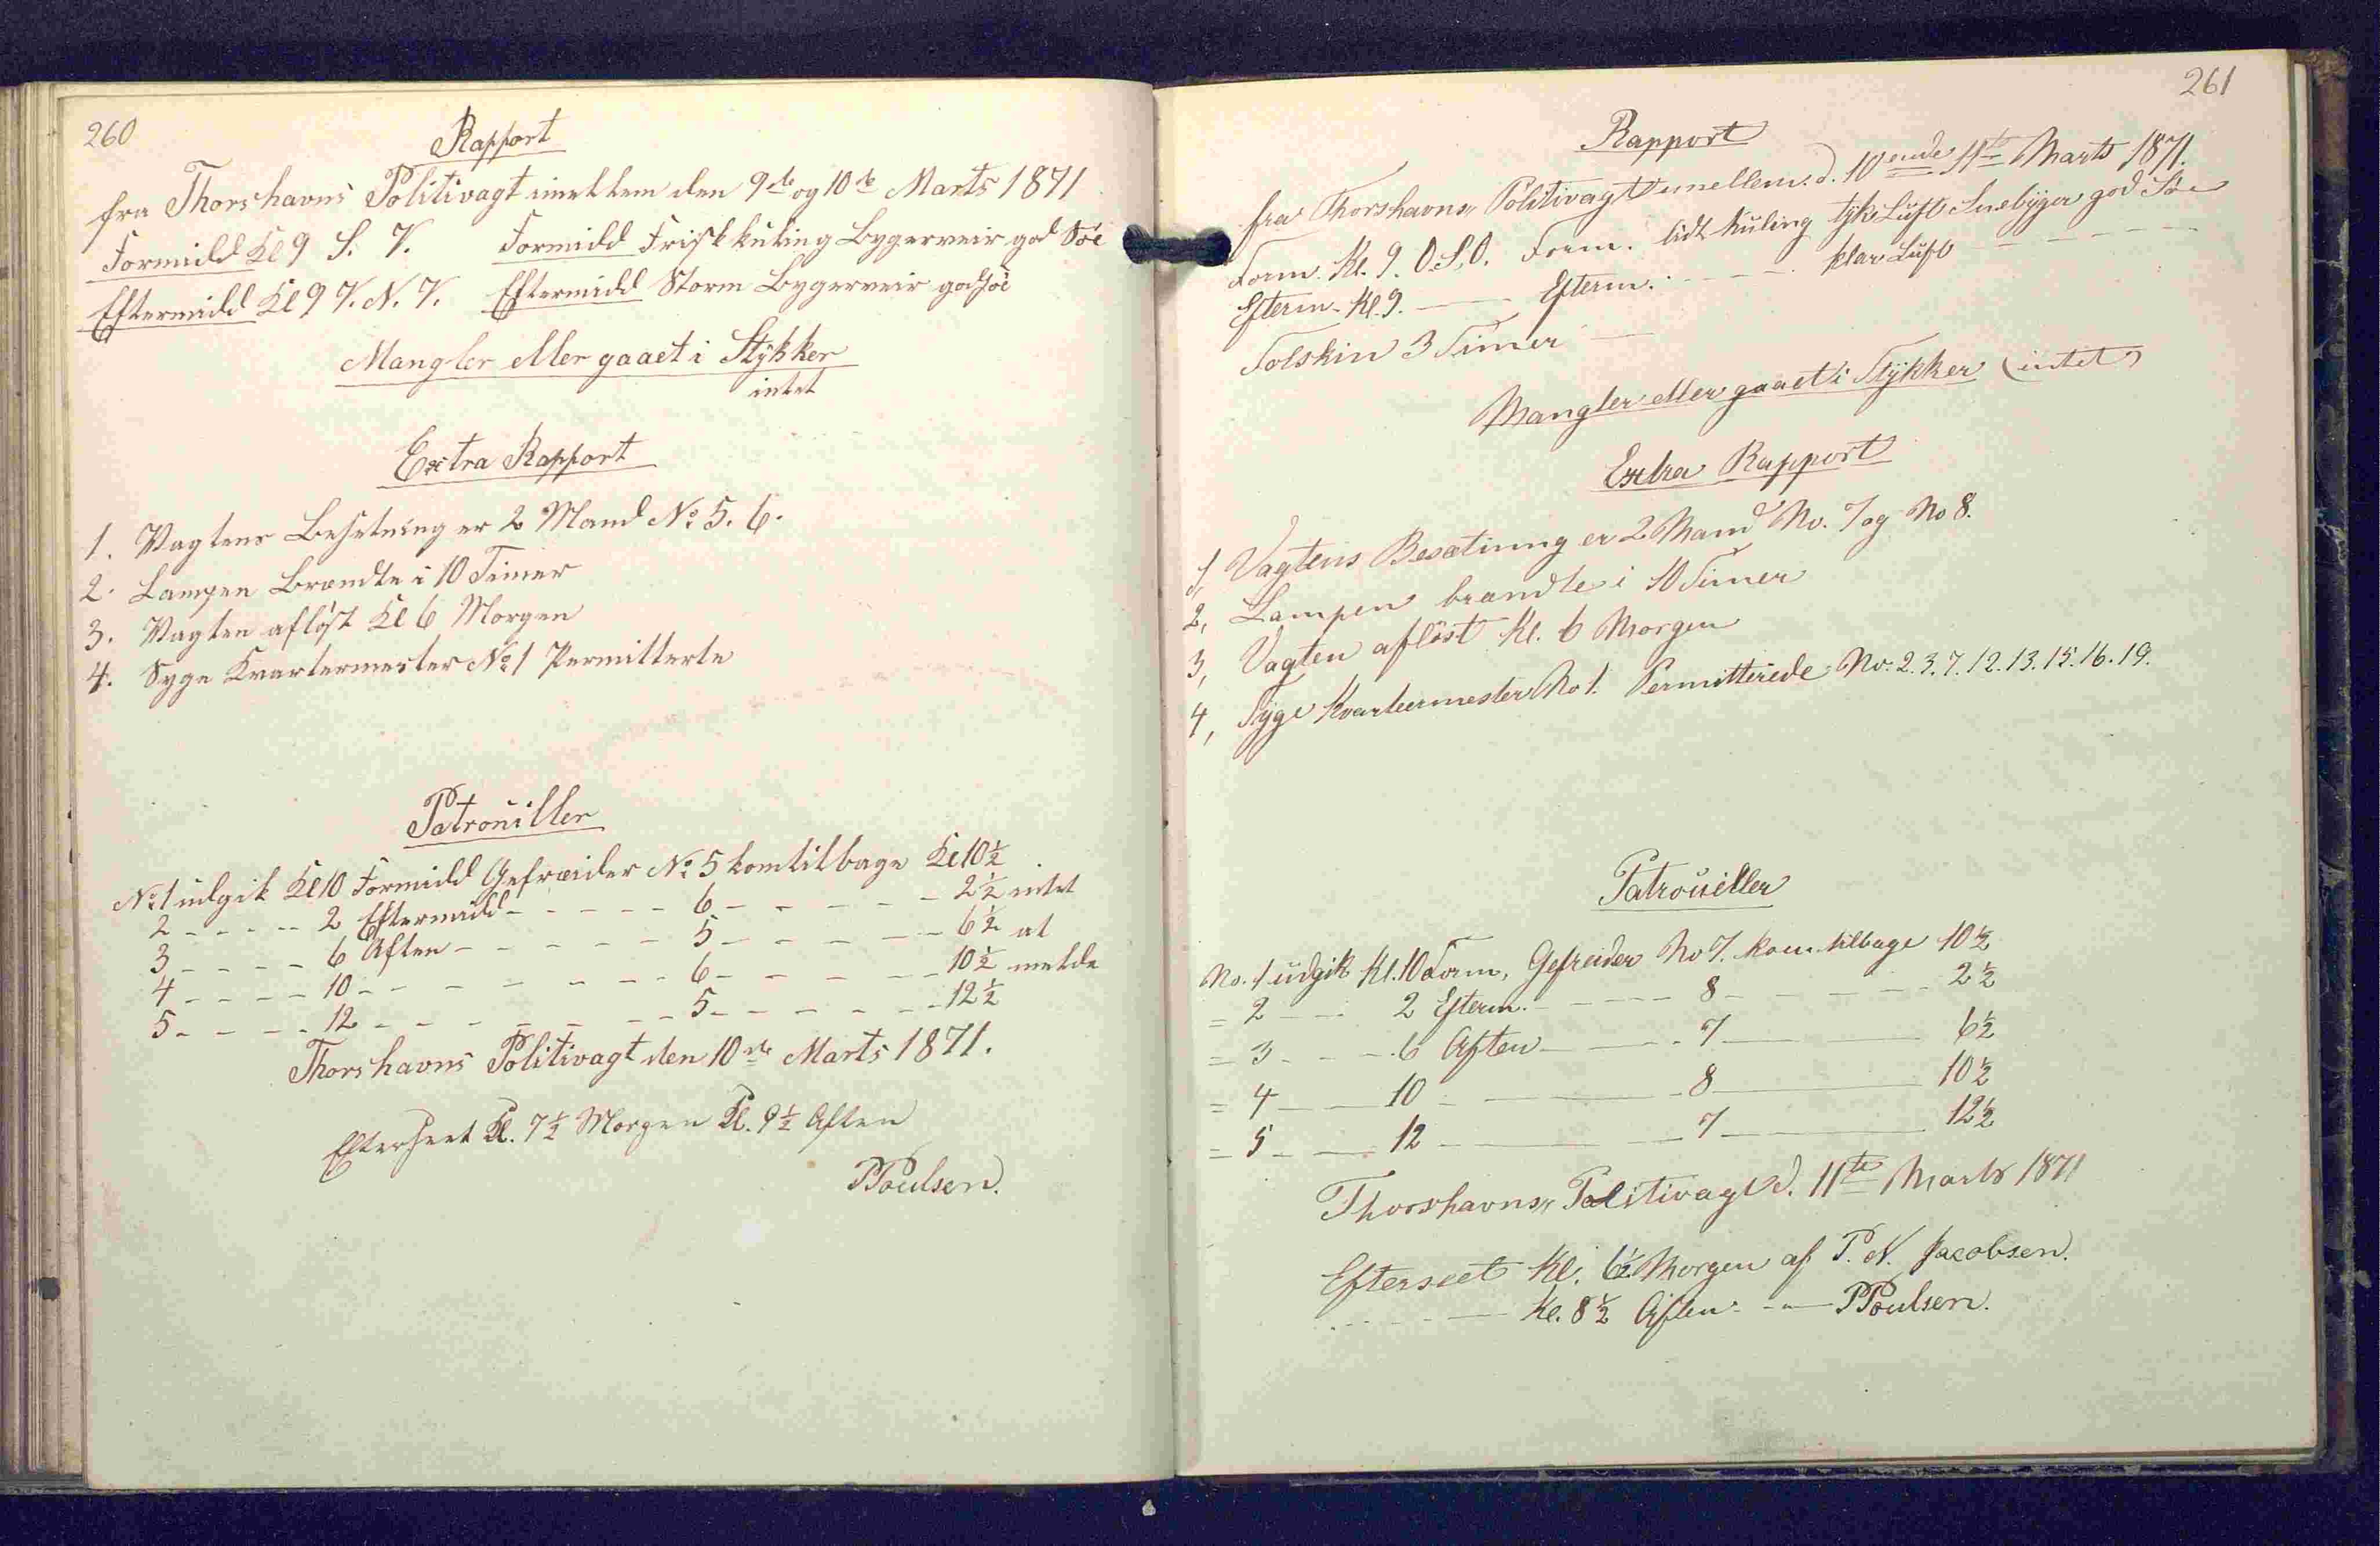 260
Rapport
fra Thorshavns Politivagt imellem den 9de og 10de Marts 1871
Formidd Kl 9 S. V. Formidd Frisk kuling Bygerveir god Söe
Eftermidd Kl 9 V. N. V. Eftermidd Storm Bygerveir god Söe
Mangler eller gaaet i Stÿkker
intet
Extra Rapport
1. Vagtens Besetning er 2 Mand No 5. 6.
2. Lampen Brændte i 10 Timer
3. Vagten afløst Kl 6 Morgen
4. Syge Kvartermester No 1 Permitterte
Patrouiller
No 1 udgik Kl 10 Formidd Gefreider No 5 kom tilbage Kl 10½
2 - - - - - 2 Eftermidd - - - - - 6 - - - - - - 2½ intet
3 - - - - - 6 Aften - - - - - 5 - - - - - - 6½ at
4 - - - - - 10 - - - - - - - 6 - - - - - - 10½ melde
5 - - - - - 12 - - - - - - - 5 - - - - - - 12½
Thorshavns Politivagt den 10de Marts 1871.
Efterseet Kl. 7½ Morgen Kl. 9½ Aften
PPoulsen.
261
Rapport
fra Thorshavns Politivagt imellem d. 10ende 11te Marts 1871.
Form. Kl. 9. O.S.O. Form. lidt Kuling tÿk Luft Sneebÿger god Söe
Efterm. Kl. 9. — Efterm. - - - - klar Luft - - - - - -
Solskin 3 Timer —
Mangler eller gaaet i Stÿkker (intet)
Extra Rapport
1, Vagtens Besætning er 2 Mand No. 7 og No 8.
2, Lampen brændte i 10 Timer
3, Vagten aflöst Kl. 6 Morgen
4, Sÿge Kvarteermester No 1. Permitterede No. 2. 3. 7. 12. 13. 15. 16. 19.
Patrouiller
No. 1 udgik Kl. 10 Form, Gefreider No 7. kom tilbage 10½
= 2 - - - 2 Efterm. - - - - - 8 - - - - - 2½
= 3 - - - 6 Aften - - - 7 - - - 6½
= 4 - - - 10 - - - 8 - - - 10½
= 5 - - - 12 - - - 7 - - - 12½
Thorshavns Politivagt d. 11te Marts 1871
Efterseet Kl. 6½ Morgen af P. N. Jacobsen.
- - - - - Kl. 8½ Aften - " - PPoulsen.